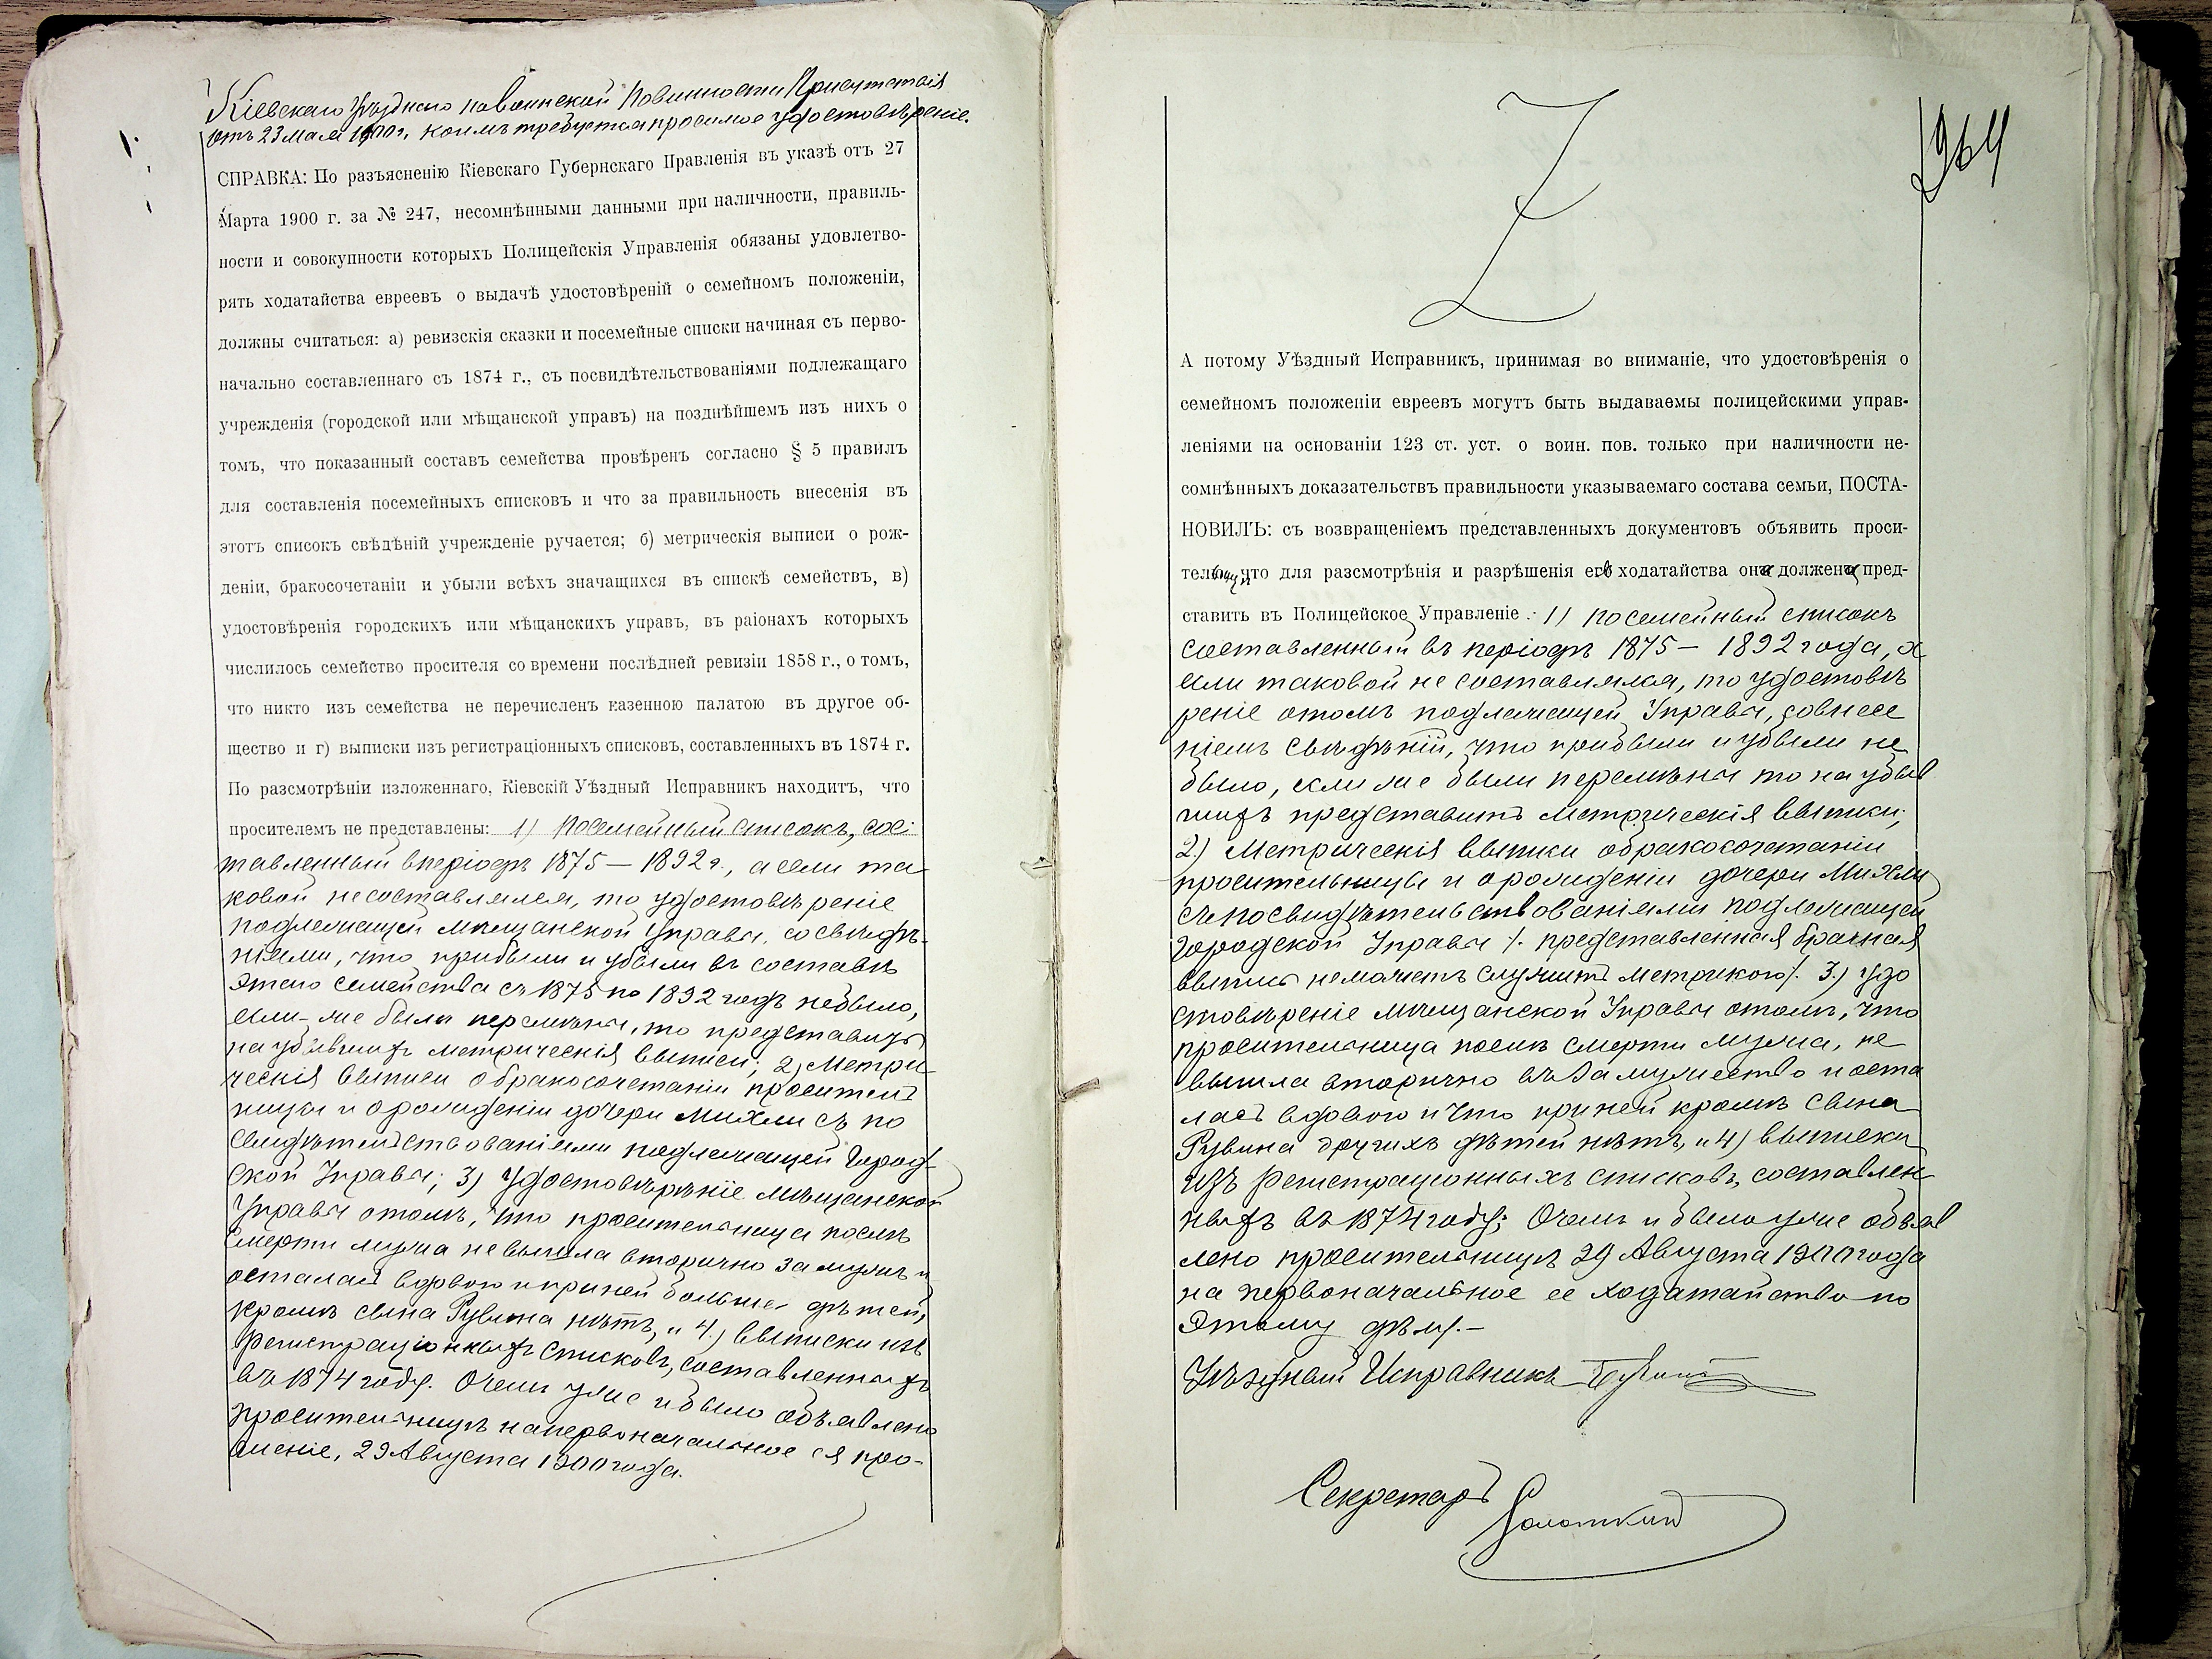 Кіевскаго Уѣзднаго по воинской Повинности Присутствія
отъ 23 Мая 1900 г. коимъ требуется просимое удостовѣреніе.
СПРАВКА: По разъясненію Кіевскаго Губернскаго Правленія въ указѣ отъ 27
Марта 1900 г. за № 247, несомнѣнными данными при наличности, правиль-
ности и совокупности которыхъ Полицейскія Управленія обязаны удовлетво-
рять ходатайства евреевъ о выдачѣ удостовѣреній о семейномъ положеніи,
должны считаться: а) ревизскія сказки и посемейные списки начиная съ перво-
начально составленнаго съ 1874 г., съ посвидѣтельствованіями подлежащаго
учрежденія (городской или мѣщанской управъ) на позднѣйшемъ изъ нихъ о
томъ, что показанный составъ семейства провѣренъ согласно § 5 правилъ
для составленія посемейныхъ списковъ и что за правильность внесенія въ
этотъ списокъ свѣдѣній учрежденіе ручается; б) метрическія выписи о рож-
деніи, бракосочетаніи и убыли всѣхъ значащихся въ спискѣ семействъ, в)
удостовѣренія городскихъ или мѣщанскихъ управъ, въ раіонахъ которыхъ
числилось семейство просителя со времени послѣдней ревизіи 1858 г., о томъ,
что никто изъ семейства не перечисленъ казенною палатою въ другое об-
щество и г) выписки изъ регистраціонныхъ списковъ, составленныхъ въ 1874 г.
По разсмотрѣніи изложеннаго, Кіевскій Уѣздный Исправникъ находитъ, что
просителемъ не представлены: 1) Посемейный списокъ, сос-
тавленный въ періодъ 1875 — 1892 г., а если та
ковой не составлялся, то удостовѣреніе
подлежащей мѣщанской Управы, со свѣдѣ-
ніями, что прибыли и убыли въ составѣ
этого семейства съ 1875 по 1892 годъ небыло,
если-же были перемѣны, то представить
на убывшихъ метрическія выписи; 2) Метри
ческія выписи о бракосочетаніи проситель
ницы и о рожденіи дочери Михли съ по
свидѣтельствованіями подлежащей Город-
ской Управы; 3) Удостовѣрѣніе мѣщанской
Управы о томъ, что просительница послѣ
смерти мужа не вышла вторично замужъ и
осталась вдовою и при ней больше дѣтей,
кромѣ сына Рувина нѣтъ, и 4) выписки изъ
регистраціонныхъ списковъ, составленныхъ
въ 1874 году. О чемъ уже и было объявлено
просительницѣ на первоначальное ея про-
шеніе, 29 Августа 1900 года.
264
А потому Уѣздный Исправникъ, принимая во вниманіе, что удостовѣренія о
семейномъ положеніи евреевъ могутъ быть выдаваемы полицейскими управ-
леніями на основаніи 123 ст. уст. о воин. пов. только при наличности не-
сомнѣнныхъ доказательствъ правильности указываемаго состава семьи, ПОСТА-
НОВИЛЪ: съ возвращеніемъ представленныхъ документовъ объявить проси-
тельницѣ, что для разсмотрѣнія и разрѣшенія ея ходатайства она должна пред-
ставить въ Полицейское Управленіе: 1) Посемейный списокъ
составленный въ періодъ 1875 — 1892 года, а
если таковой не составлялся, то удостовѣ
реніе отомъ подлежащей Управы, совнесе
ніемъ свѣдѣній, что прибыли и убыли не
было, если же были перемѣны то на убыв
шихъ представить Метрическія выписи;
2) Метрическія выписи о бракосочетаніи
просительницы и о рожденіи дочери Михли
съ посвидѣтельствованіями подлежащей
Городской Управы /. представленная брачная
выпись не можетъ служить метрикою/. 3) удо
стовѣреніе мѣщанской Управы отомъ, что
просительница послѣ смерти мужа, не
вышла вторично въ замужество и оста
лась вдовою и что при ней кромѣ сына
Рувина другихъ дѣтей нѣтъ, и 4) выписки
изъ регистраціонныхъ списковъ, составлен
ныхъ въ 1874 году; О чемъ и было уже объяв
лено просительницѣ 29 Августа 1900 года
на первоначальное ее ходатайство по
этому дѣлу.—
Уѣздный Исправникъ
Секретарь